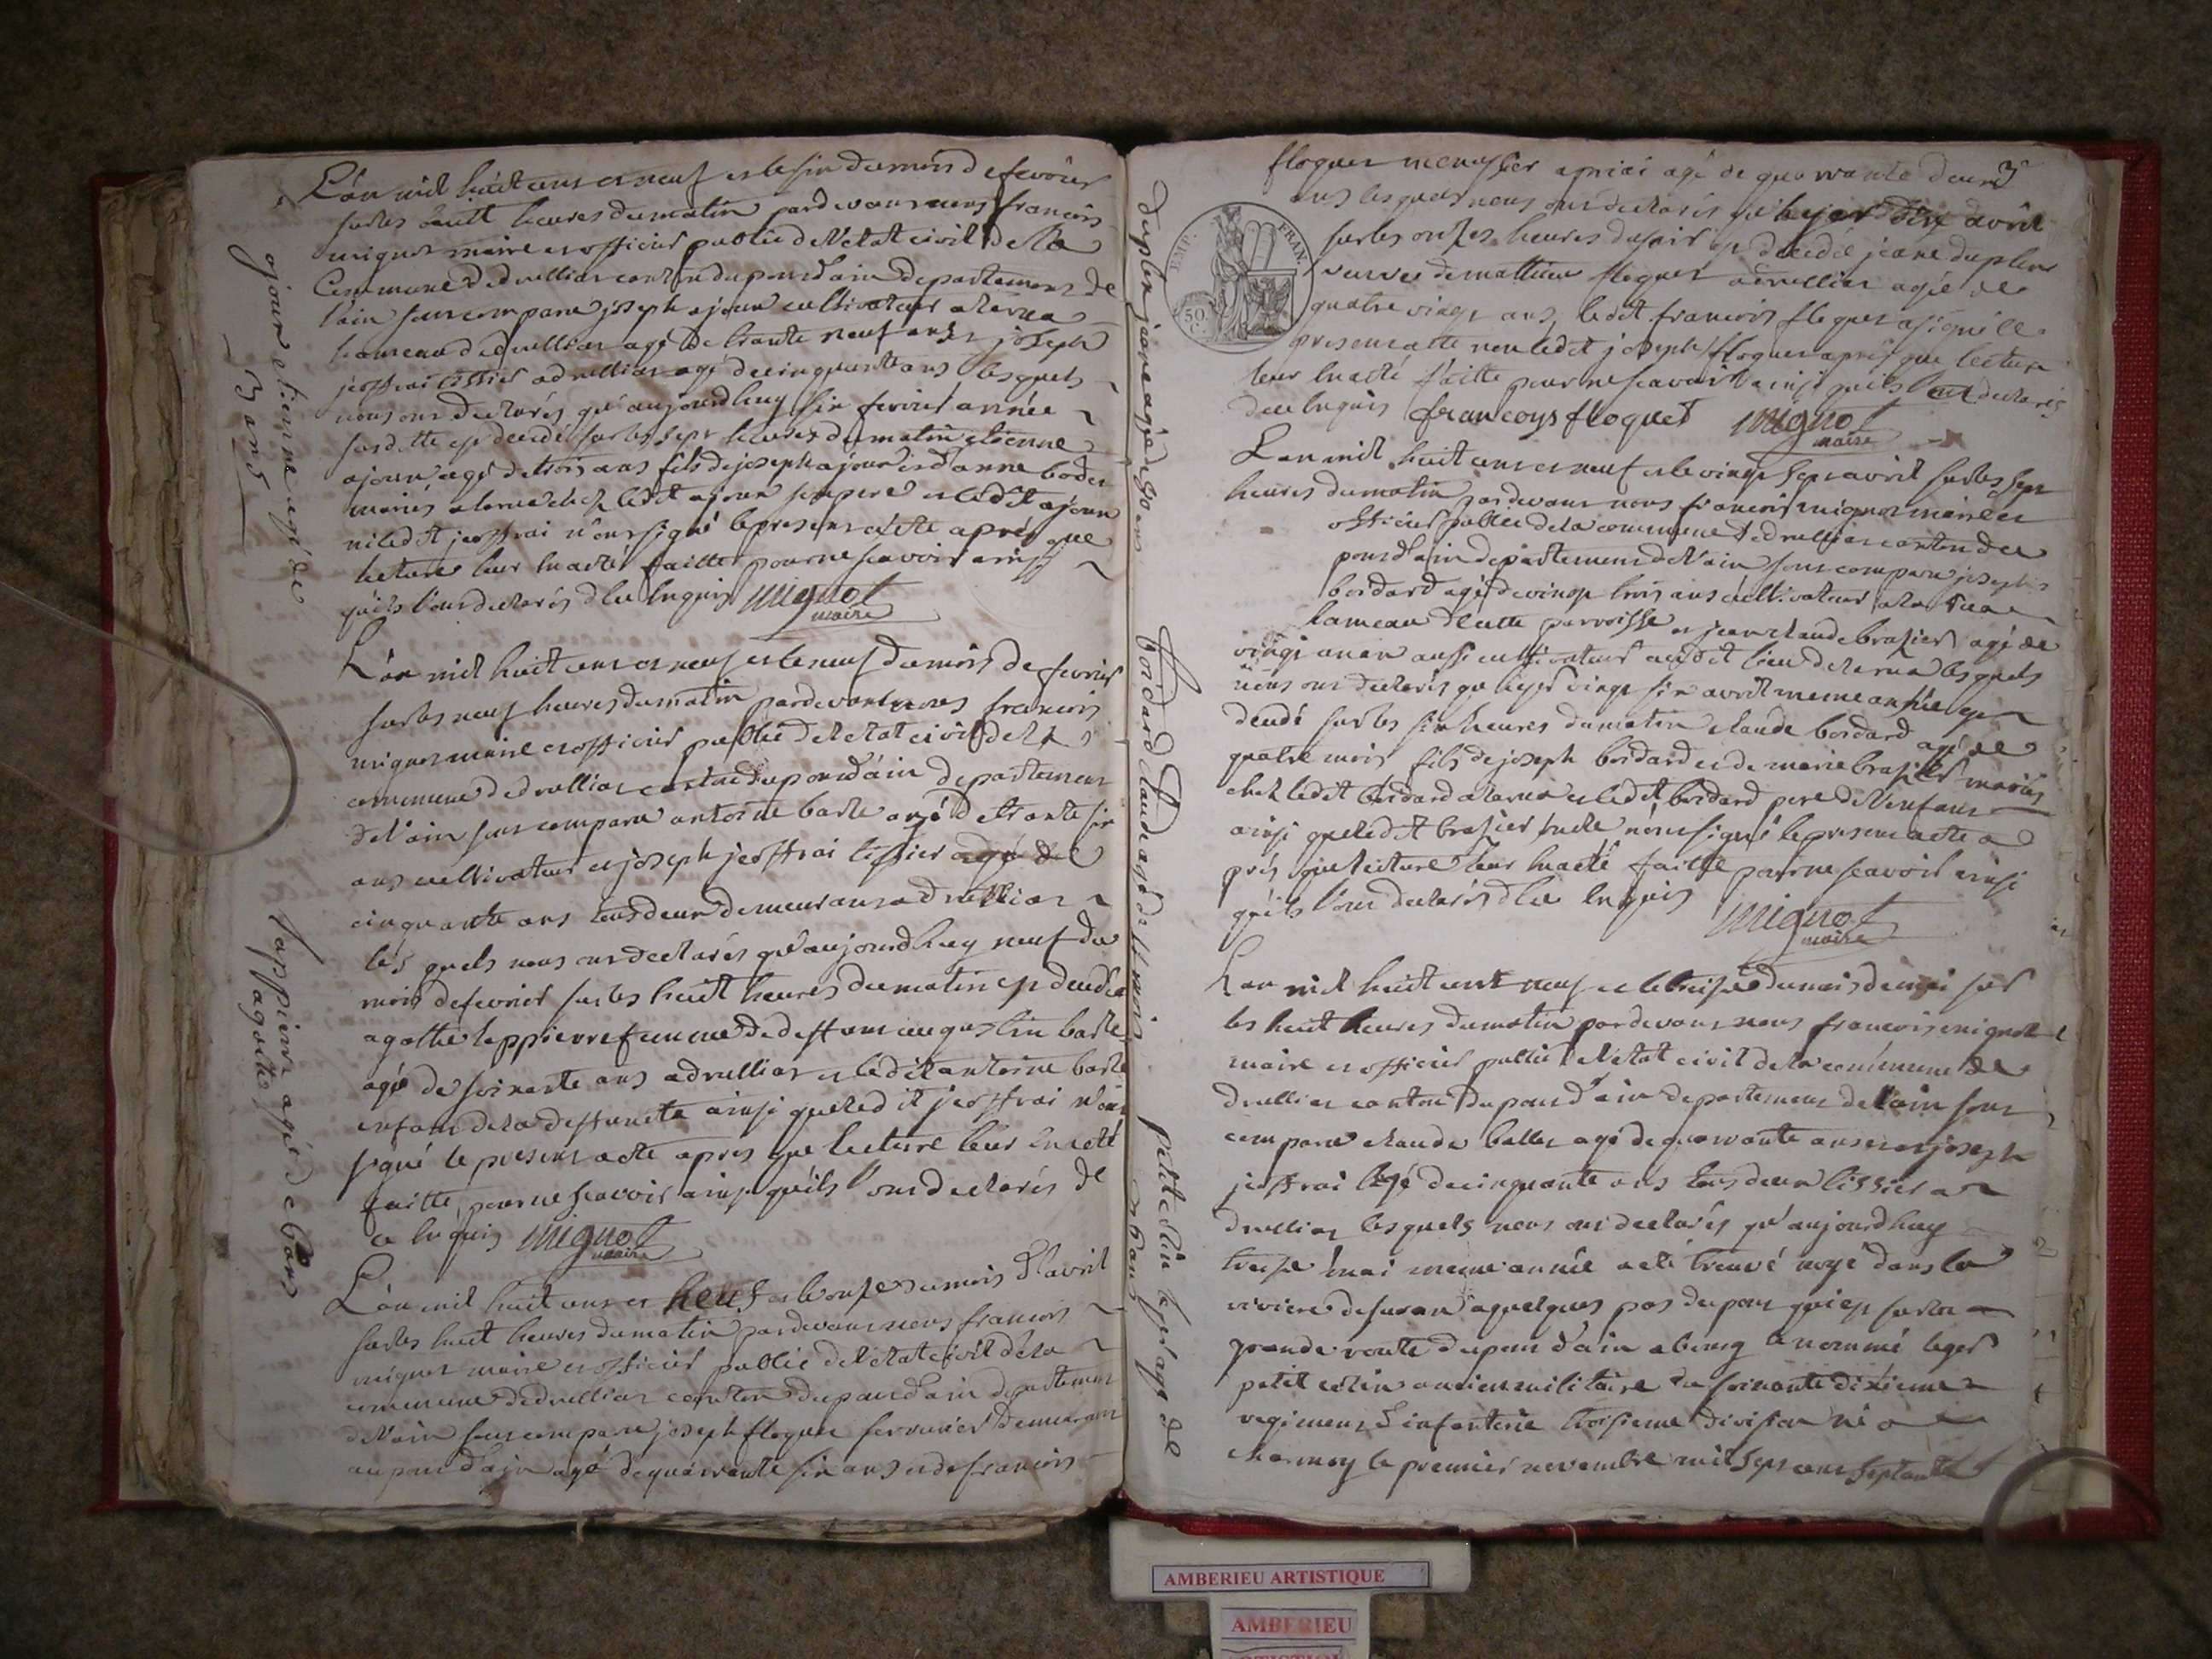 L'an mil huit cens et neuf et le six du mois de fevrier
sur les huit heures du matin pardevant nous francois
mignot maire et officier public de l'etat civil de la
Commune de druilliat canton du pont d'ain departement de
l'ain sont comparu joseph ajoux cultivateur a larua
hameau de druilliat agé de trante neuf ans et joseph
jeoffrai tissier a druillat agé de cinquante ans lesquels
nous ont declarés qu'aujourdhuy six fevrier année
susditte est decedé sur les sept heures du matin etienne
ajoux agé de trois ans fils de joseph ajoux et d'anne
mariés a larua chez ledit ajoux son pere et ledit ajoux
ni ledit jeoffrai n'ont signé le present acte aprés que
lecture leur en a eté faitte pour ne scavoir ainsy
qu'ils l'ont declarés de ce enquis mignot
maire
ajoux etienne agé de
3 ans
L'an mil huit cens et neuf et le neuf du mois de fevrier
sur les neuf heures du matin pardevant nous francois
mignot maire et officier public de l'etat civil de la
commune de druillat canton du pont d'ain departement
de l'ain sont comparu antoine barle agé de trante six
ans cultivateur et joseph jeoffrai tissier agé de
cinquante ans tous deux demeurans a druillat
les quels nous ont declarés qu'aujourdhuy neuf du
mois de fevrier sur les huit heures du matin est decedée
agathe lappierre femme de deffunt augustin barle
agée de soixante ans a druillat et ledit antoine barle
enfant de la deffuncte ainsi que ledit jeoffrai n'ont
signé le present acte apres que lecture leur en a eté
faitte pour ne scavoir ainsi qu'ils l'ont declarés de
ce enquis mignot
maire
lappierre agée de 60 ans
agathe
L'an mil huit cens et neuf et le onze du mois d'avril
sur les huit heures du matin pardevant nous francois
mignot maire et officier public de l'etat civil de la
commune de druillat canton du pont d'ain departement
de l'ain sont comparu joseph floquet serrurier demeurant
au pont d'ain agé de quarante six ans et de francois
floquet menussier agé de quarante deux
ans lesquels nous ont declarés qu'hyer dix avril
sur les onzes heures du soir est decedé jeane duplen
veuve de mathieu floquet a druillat agée de
quatre vingt ans, ledit francois floquet a signé le
present acte non ledit joseph floquet aprés que lecture
leur en a eté faitte pour ne scavoir ainsi qu'ils l'ont declarés
de ce enquis francoys floquet mignot
maire
EMP. FRAN.
50 C.
duplen jeane agée de 80 ans
L'an mil huit cens et neuf et le vingt sept avril sur les sept
heures du matin pardevant nous francois mignot maire et
officier public de la commune de druillat canton du
pont d'ain departement de l'ain sont comparu joseph
bordard agé de vingt trois ans cultivateur a la rua
hameau de cette parroisse et jean claude brazier agé de
vingt un an aussi cultivateur audit lieu de larua lesquels
nous ont declarés qu'hyer vingt six avril meme année est
decedé sur les six heures du matin claude bordard agé de
quatre mois fils de joseph bordard et de marie brazier mariés
chez ledit bordard a larua et ledit bordard pere de l'enfant
ainsi que ledit brazier oncle n'ont signé le present acte a
prés que lecture leur en a eté faitte pour ne scavoir ainsi
qu'ils l'ont declarés de ce enquis mignot
maire
bordard claude agé de 4 mois
L'an mil huit cent neuf et le treize du mois de mai sur
les huit heures du matin pardevant nous francois mignot
maire et officier public de l'etat civil de la commune de
druillat canton du pont d'ain departement de l'ain sont
comparu claude ballet agé de quarante ans et joseph
jeoffrai agé de cinquante ans tous deux tissier a
druillat lesquels nous ont declarés qu'aujourdhuy
treize mai meme année a eté trouvé noyé dans la
riviere de suran a quelques pas du pont qui est sur la
grande route du pont d'ain a bourg le nommé leger
petit colin ancien militaire du soixante dixieme
regiment d'infanterie troisieme division né a
charmoy le premier novembre mil sept cent septante
petit colin leger agé de
ans
AMBERIEU ARTISTIQUE
AMBERIEU
ARTISTIQUE